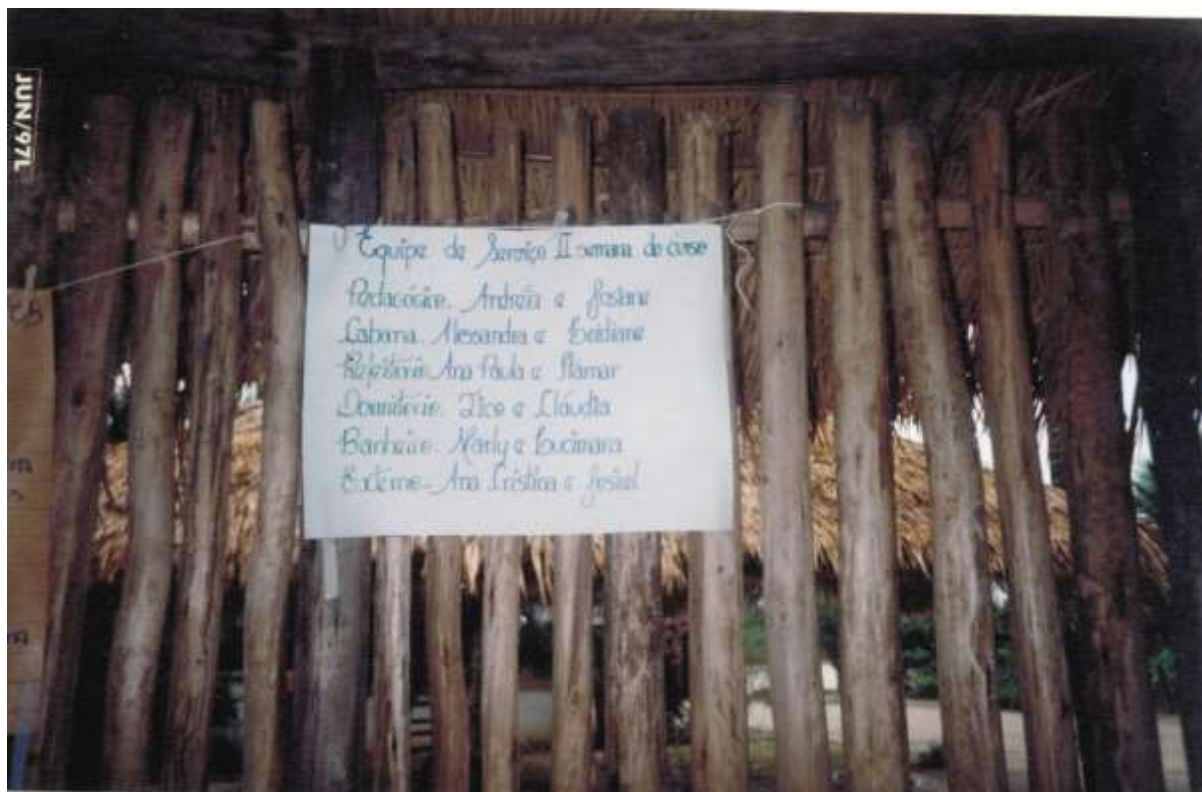 JUN/97L
Equipe de Serviço II semana do curso
Pedagógico. Andréia e Josiane
Cabana. Alessandra e Leidiane
Refeitório. Ana Paula e Itamar
Dormitório. Zico e Cláudia
Banheiro. Marly e Lucimara
Externo. Ana Cristina e Josiel